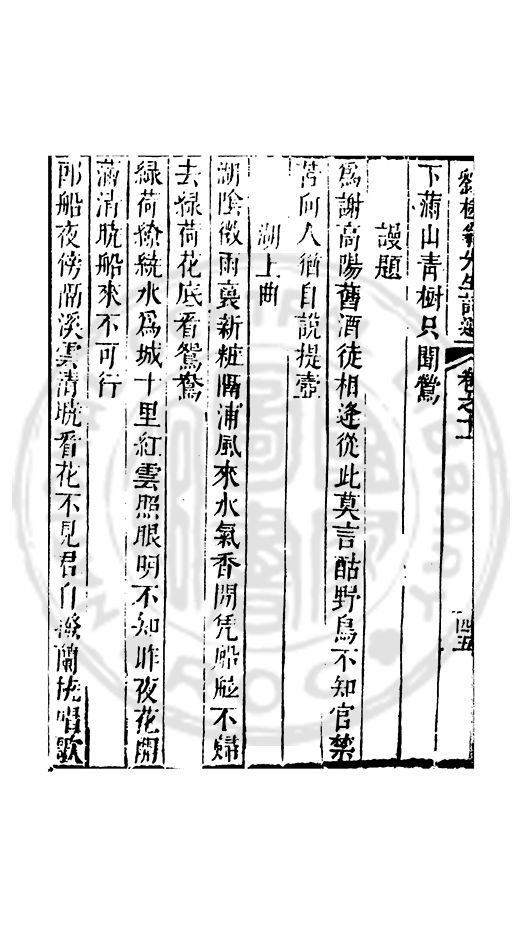 劉槎翁先生詩選 卷之十 四五
下滿山青樹只聞鶯
謾題
爲謝高陽舊酒徒相逢從此莫言酤野鳥不知官禁
苦向人猶自說提壺
湖上曲
湖陰微雨裛新粧隔浦風來水氣香閒凭船舷不歸
去綠荷花底看鴛鴦
綠荷繚繞水爲城十里紅雲照眼明不知昨夜花開
滿清曉船來不可行
郎船夜傍隔溪雲清曉看花不見君自撥蘭橈唱歌